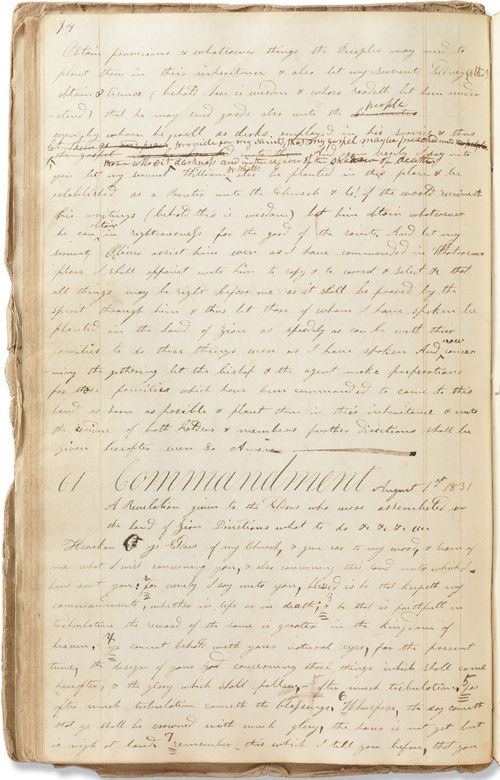 94
Obtain provisions & whatsoever things the Deciples may need to
plant them in their inheritence & also let my Servent Sidney gilbert
obtain a licence (behold here is wisdom & whoso readeth let him under
stand) that he may send goods also unto the people
by whom he will as clerks employed in his service & thus
provide for my saints that my gospel may be preached unto those
who sit in darkness and in the region & shadow of death
you let my servent William W Phelps be planted in this place & be
established as a Printer unto the Church & lo! if the world receiveth
his writings (behold this is wisdom) let him obtain whatsoever
he can obtain in righteousness for the good of the saints And let my
servent Oliver assist him even as I have commanded in Whatsoever
place I shall appoint unto him to copy & to correct & select &c that
all things may be right before me as it shall be proved by the
spirit through him & thus let those of whom I have spoken be
planted in the land of Zion as speedily as can be with their
families to do these things even as I have spoken And now concer
ning the gethering let the bishop & the agent make preparations
for those families which have been commanded to come to this
land as soon as possible & plant them in their inheritence & unto
the residue of both Elders & members further directions shall be
given hereafter even so Amen
61 Commandment August 1st 1831
A Revelation given to the Elders who were assembled on
the land of Zion Directions what to do &c &c &c
Hearken O ye Elders of my Church, & give ear to my word, & learn of
me what I will concerning you, & also concerning this land unto which I
have sent you: 2 for verely I say unto you, blessed is he that keepeth my
commandments, whether in life or in death; & 3 he that is faithfull in
tribulation the reward of the same is greater in the kingdom of
heaven. 4 ye cannot behold with your natural eyes, for the present
time, the design of your God concerning those things which shall come
hereafter, & the glory which shall follow, after much tribulation. 5 for
after much tribulation cometh the blessings. 6 Wherefore, the day cometh
that ye shall be crowned with much glory, the hour is not yet but
is nigh at hand 7 remember, this which I tell you before, that you